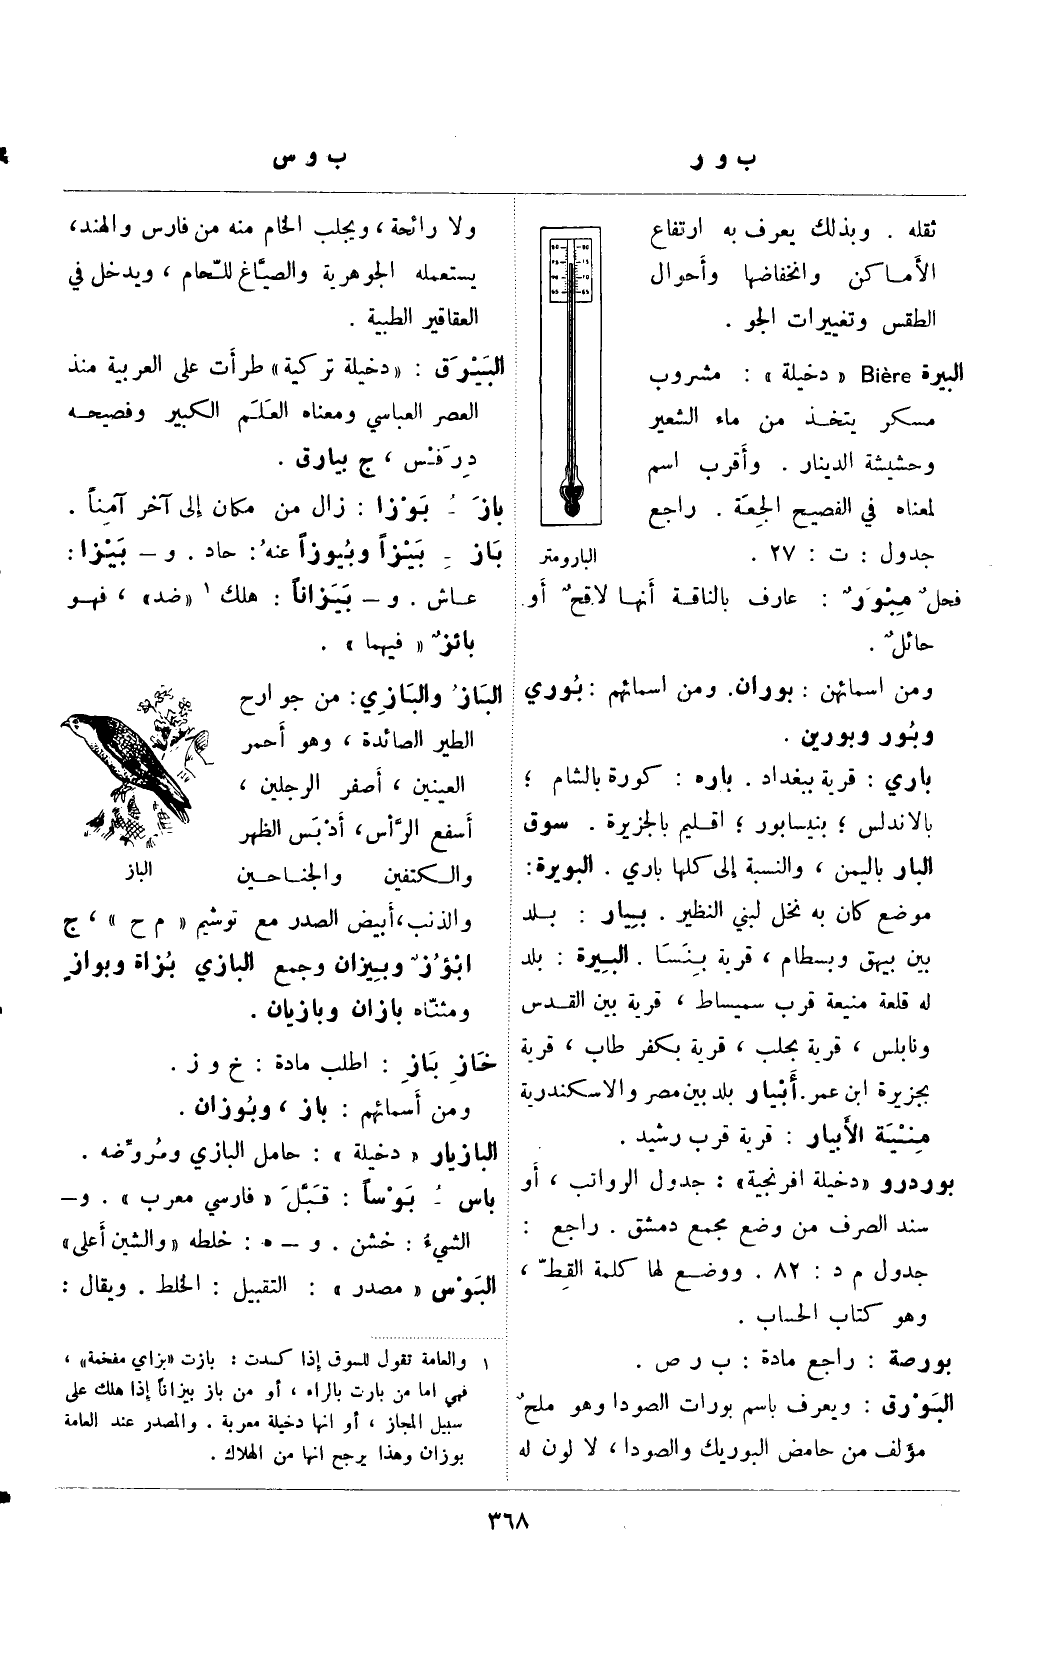 ب و ر
ب و س
ثقله . وبذلك يعرف به ارتفاع
الأماكن وانخفاضها وأحوال
الطقس وتغييرات الجو .
البيرة Bière « دخيلة » : مشروب
مسكر يتخذ من ماء الشعير
وحشيشة الدينار . وأقرب اسم
لمعناه في الفصيح الجعَة . راجع
جدول : ت : ٢٧ .
البارومتر
فحلٌ مِبْوَرٌ : عارف بالناقة أنها لاقحٌ أو
حائلٌ .
ومن اسمائهن : بوران. ومن اسمائهم : بُوري
وبُور وبورين .
باري : قرية ببغداد . باره : كورة بالشام ؛
بالاندلس ؛ بنيسابور ؛ اقليم بالجزيرة . سوق
البار باليمن ، والنسبة إلى كلها باري . البويرة:
موضع كان به نخل لبني النظير . بيار : بلد
بين بيهق وبسطام ، قرية بِنَسَا . البِيرة : بلد
له قلعة منيعة قرب سميساط ، قرية بين القدس
ونابلس ، قرية بحلب ، قرية بكفر طاب ، قرية
بجزيرة ابن عمر. أَبْيار بلد بين مصر والاسكندرية
مِنْيَة الأبيار : قرية قرب رشيد .
بوردرو «دخيلة افرنجية» : جدول الرواتب ، أو
سند الصرف من وضع مجمع دمشق . راجع :
جدول م د : ٨٢ . ووضع لها كلمة القِطّ ،
وهو كتاب الحساب .
بورصة : راجع مادة : ب ر ص .
البَوْرق : ويعرف باسم بورات الصودا وهو ملحٌ
مؤلف من حامض البوريك والصودا ، لا لون له
ولا رائحة ، ويجلب الخام منه من فارس والهند،
يستعمله الجوهرية والصيَّاغ للّحام ، ويدخل في
العقاقير الطبية .
البَيْرَق : «دخيلة تركية» طرأت على العربية منذ
العصر العباسي ومعناه العَلَم الكبير وفصيحه
دِرَفْس ، ج بيارق .
بازَ ـُ بَوْزا : زال من مكان إلى آخر آمِناً .
بَاز ـِ بَيْزاً وبُيوزاً عنهُ : حاد . و – بَيْزا :
عاش . و – بَيَزاناً : هلك ١ «ضد» ، فهو
بائزٌ « فيهما » .
البَازُ والبَازِي: من جوارح
الطير الصائدة ، وهو أحمر
العينين ، أصفر الرجلين ،
أسفع الرَّأس، أدْبَس الظهر
والكتفين والجناحين
الباز
والذنب، أبيض الصدر مع توشيم « م ح » ، ج
ابْؤُزٌ وبيزان وجمع البازي بُزاة وبوازٍ
ومثنّاه بازان وبازيان .
خَازِ بَازِ : اطلب مادة : خ و ز .
ومن أسمائهم : باز ، وبُوزان .
البازيار « دخيلة » : حامل البازي ومُروِّضه .
باس ـُ بَوْساً : قبَّلَ « فارسي معرب » . و –
الشيءُ : خشن . و – ه : خلطه «والشين أعلى»
البَوْس « مصدر » : التقبيل : الخلط . ويقال :
١ والعامة تقول للسوق إذا كسدت : بازت «بزاي مفخمة» ،
فهي اما من بارت بالراه ، أو من باز بيزاناً إذا هلك على
سبيل المجاز ، أو انها دخيلة معربة . والمصدر عند العامة
بوزان وهذا يرجح انها من الهلاك .
٣٦٨